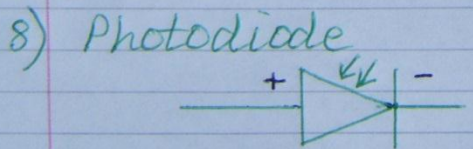 8) Photodiode
+ -